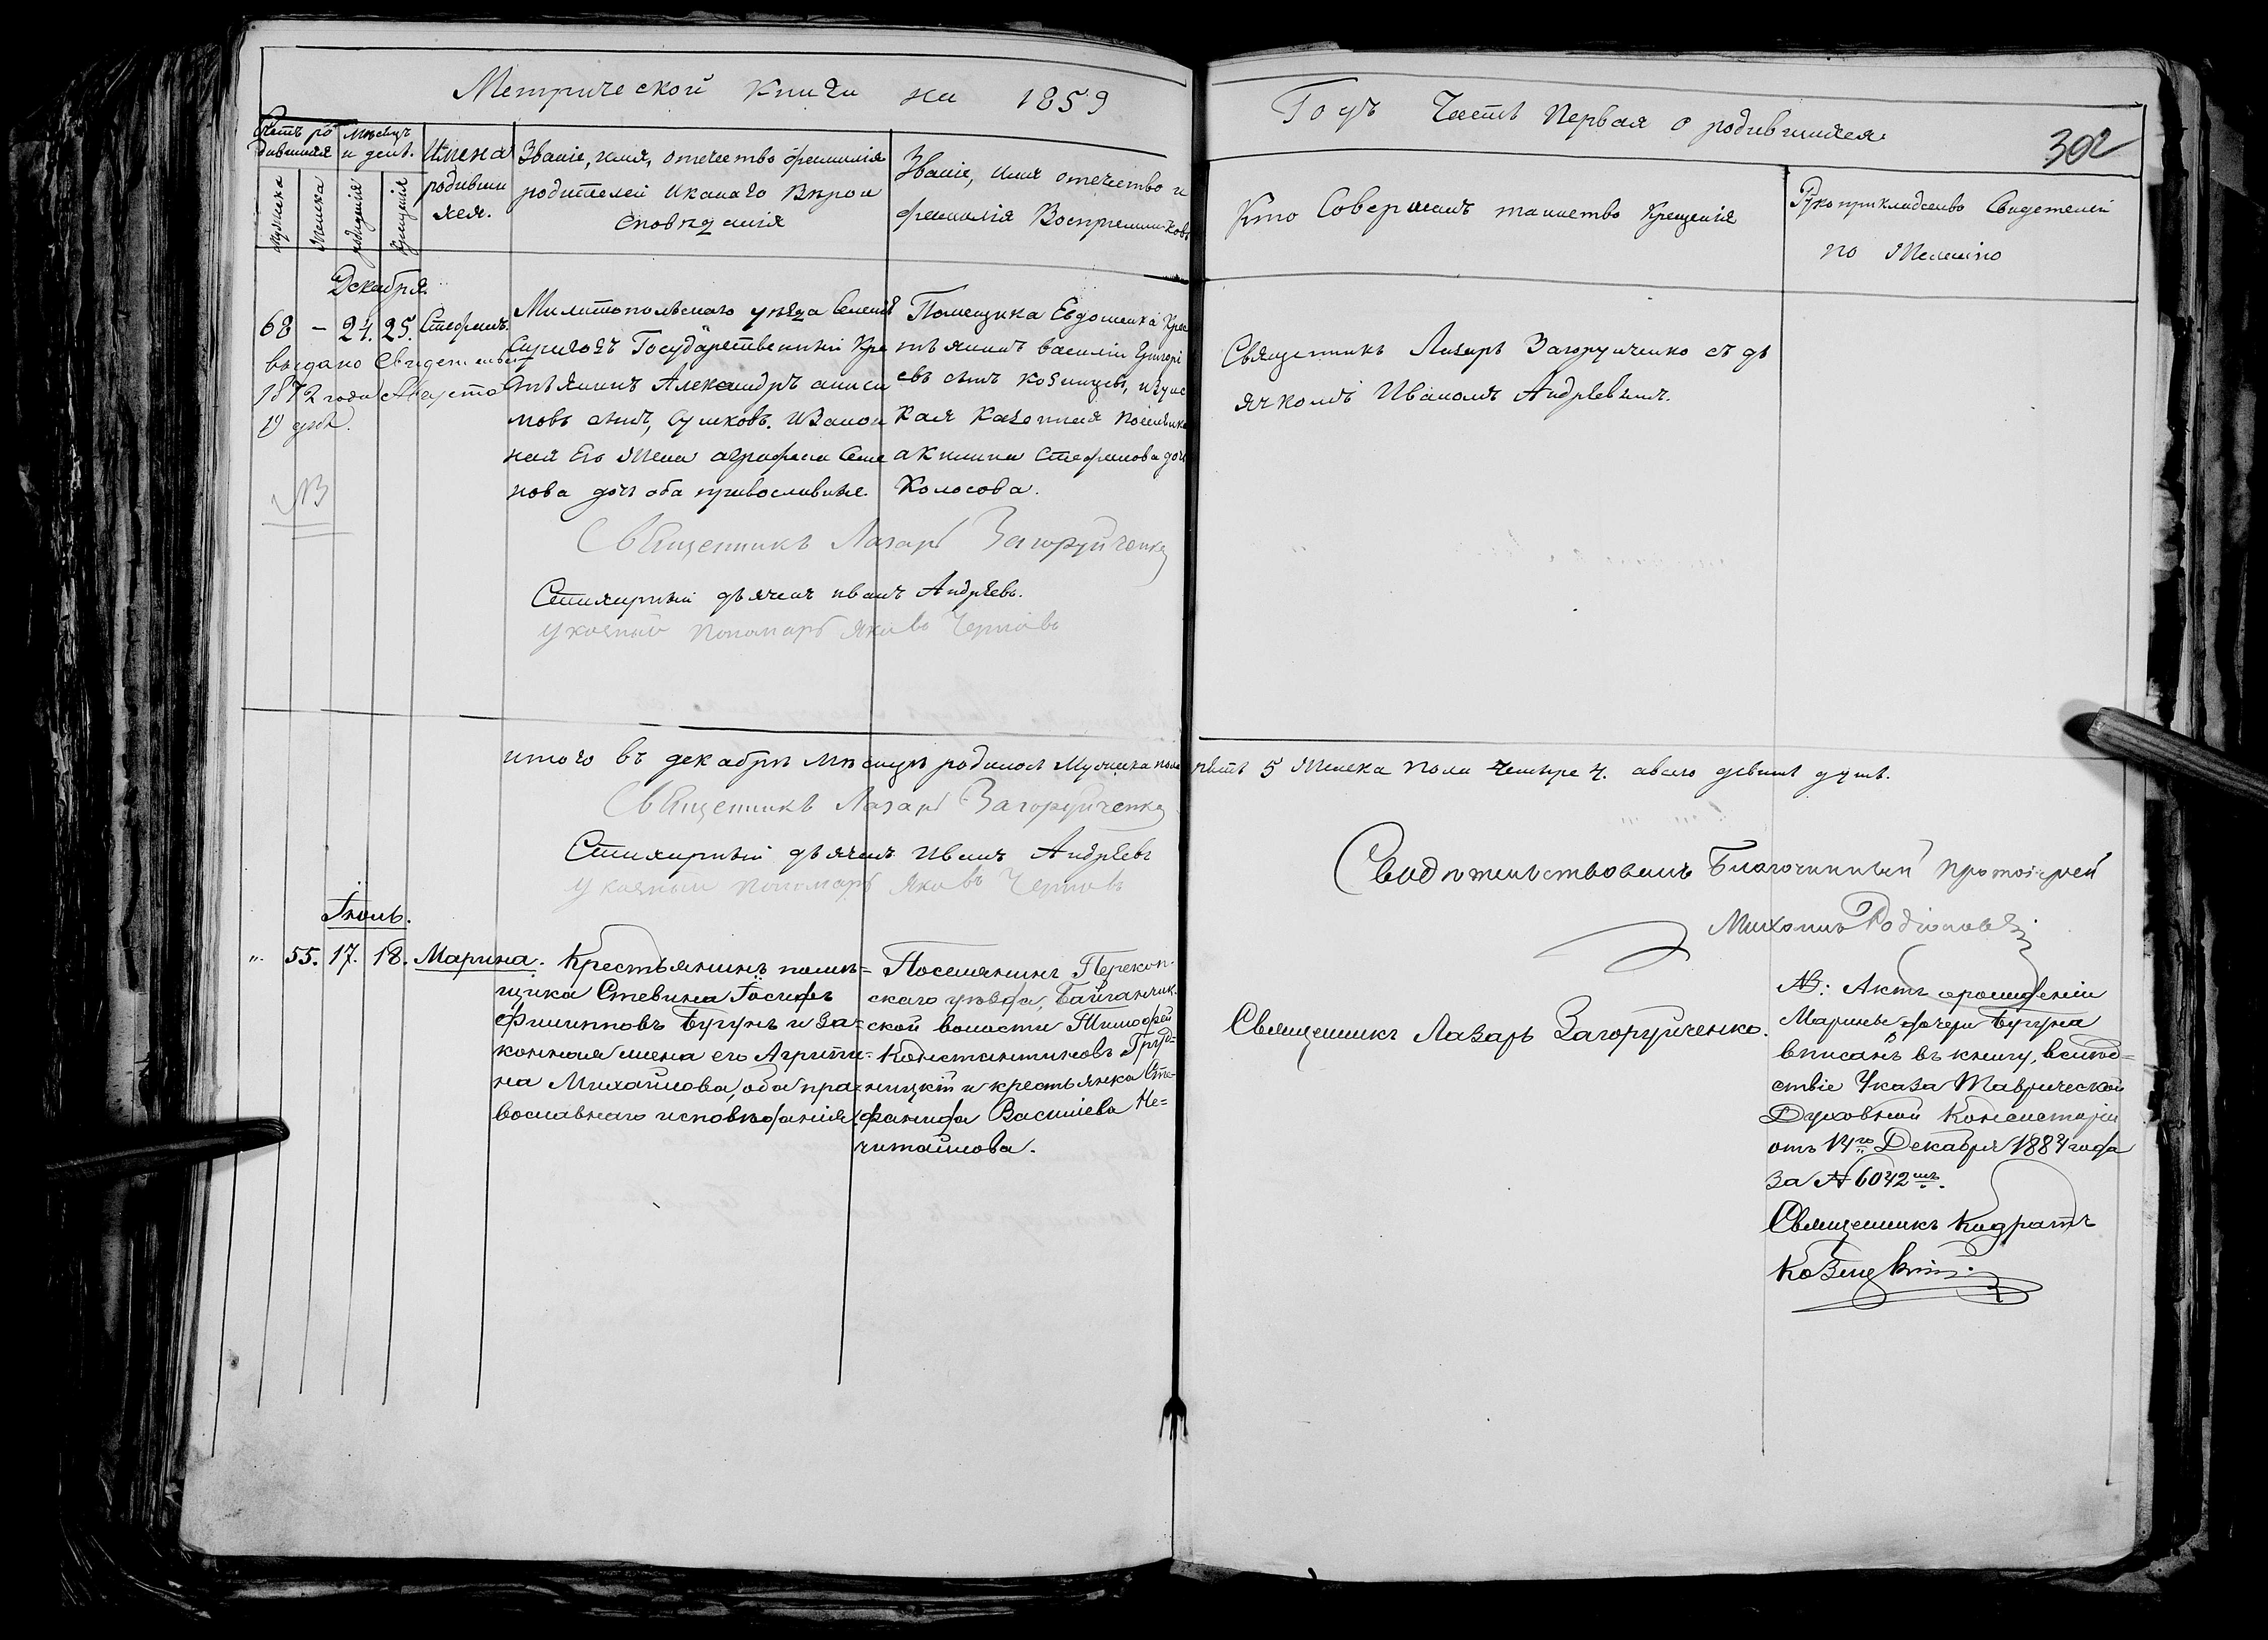 Метрической книги на 1859
Годъ Часть Первая о родившихся.
302
Счетъ ро
дившихся
Мѣсяцъ
и день.
мужска
женска
рождения
крещения
Имена
родивши
хся.
Званіе, имя, отечество фамилія
родителей и какаго Вѣрои
сповѣданія
Званіе, имя отечество и
фамилія Воспреемниковъ
Кто Совершалъ таинство Крещенія
Рукоприкладсево Свидетелей
по Желанію
Декабря.
68 – 24. 25. Стефанъ.
выдано Свидетельст
1872 года Августа
19 дня.
NB
Милитопольскаго уезда
Государственный Кре
стьянинъ Александръ аниси
мовъ сынъ, Сушковъ. И Закон
ная Его Жена аграфена Семе
нова дочь оба православные.
Помещика Евдошенка Крес
тьянинъ василій Григорі
евъ сынъ
кая казенная поселянка
акилина Стефанова дочь
Колосова.
Священникъ Лазарь Загоруйченко съ дь
ячкомъ Иваномъ Андрѣевымъ.
Священникъ Лазарь Загоруйченко
Стихарный дьячекъ иванъ Андрѣевъ.
указный пономарь Яковъ Черновъ
итого въ декабрѣ мѣсяцѣ родилось Мужска пола пять 5 Женска пола четыре 4. авсего девять душъ.
Священникъ Лазарь Загоруйченко
Стихарный дьячекъ Иванъ Андрѣевъ
указный пономарь Яковъ Черновъ
Свидѣтельствовалъ Благочинный протоіерей
Михаилъ Родіоновъ
Іюль.
„ 55. 17. 18. Марина.
Крестьянинъ помѣ=
щика Стевина Іосифъ
Филипповъ Бугунъ и за=
конная жена его Агрипи=
на Михайлова, оба пра=
вославнаго исповѣданія.
Поселянинъ Перекоп-
скаго уѣзда, Байганчик-
ской волости Тимофей
Константиновъ Груд=
ницкій и крестьянка Сте=
фанида Васильева Не=
читайлова.
Священникъ Лазарь Загоруйченко.
NB: Актъ о рожденіи
Марины дочери Бугуна
вписанъ въ книгу, вслѣд=
ствіе Указа Таврической
Духовной Консисторіи
отъ 14го Декабря 1884 года
за № 6042мъ.
Священникъ Кодратъ
Козицкій.